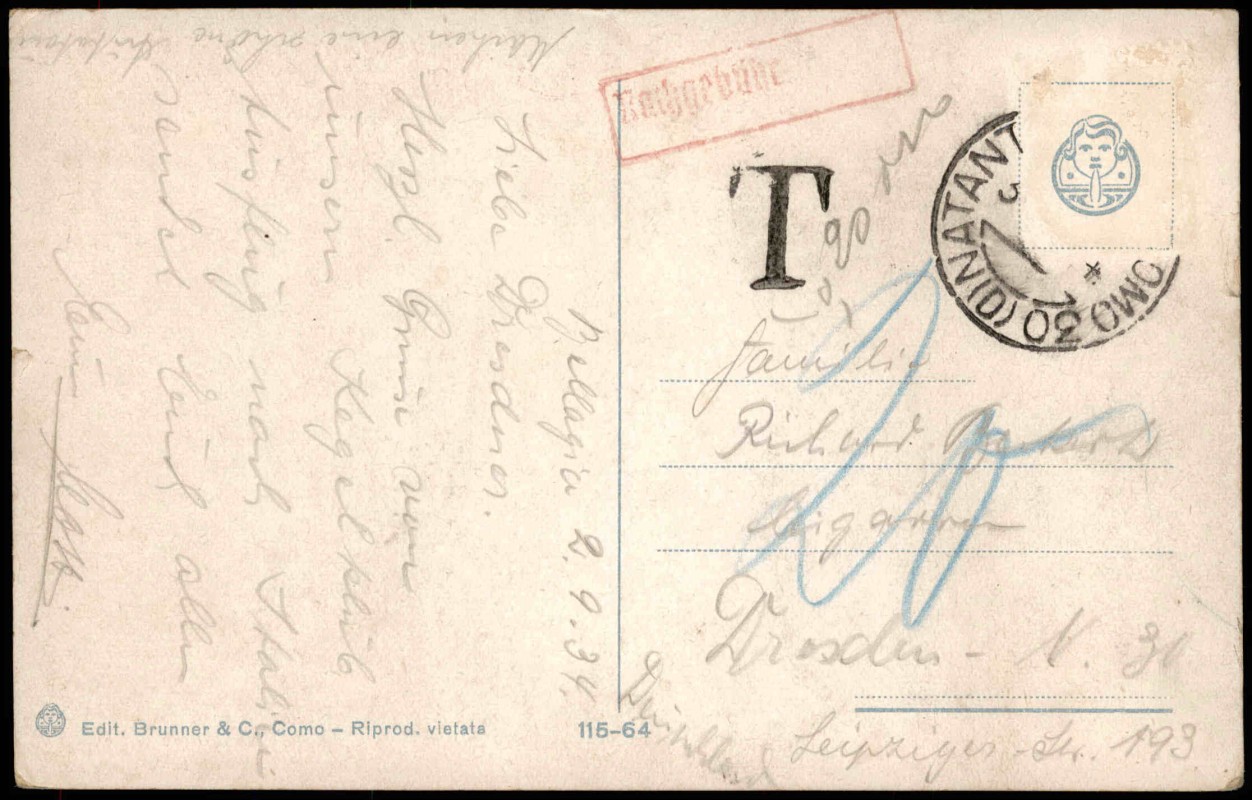 Machen eine schöne
Bellagio 2.9.34.
Liebe Dresdner.
Herzl. Grüsse vom
unsern Kegelklub
Ausflug nach Italien
sendet Euch allen
Euer
Nachgebühr
T
NATANT
COMO 30
Familie
Richard
Zigarren
Dresden - N. 30
Leipziger-Str. 193
Deutschland
Edit. Brunner & C., Como – Riprod. vietata
115-64